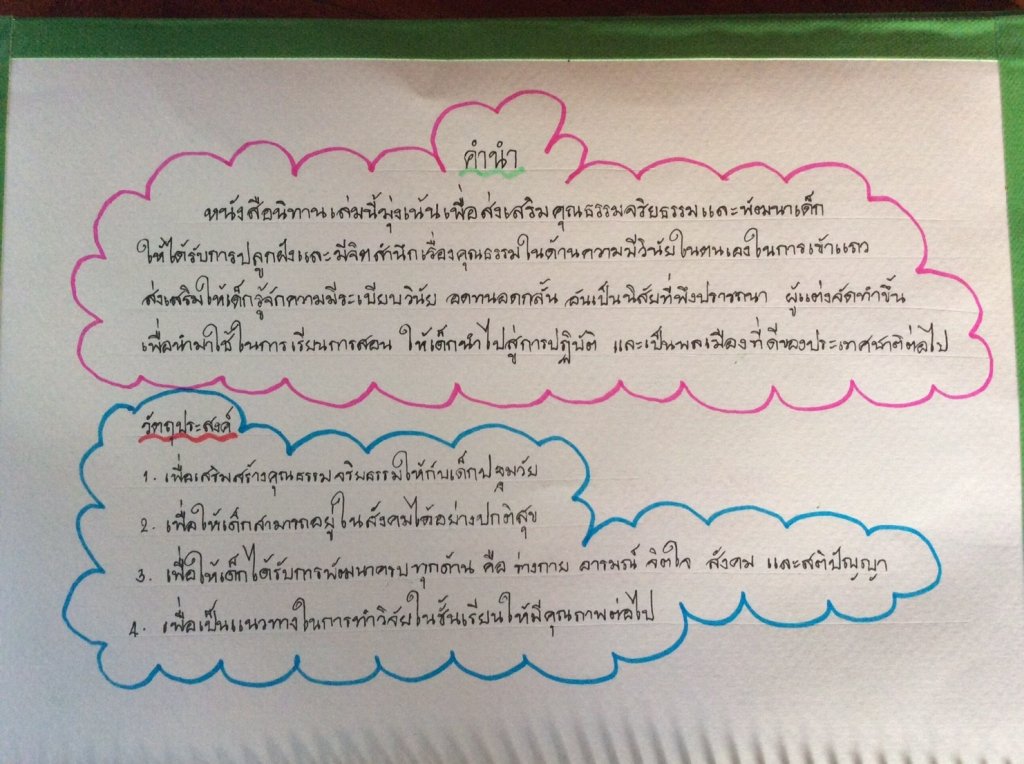 คำนำ
หนังสือนิทานเล่มนี้มุ่งเน้นเพื่อส่งเสริมคุณธรรมจริยธรรมและพัฒนาเด็ก
ให้ได้รับการปลูกฝังและมีจิตสำนึกเรื่องคุณธรรมในด้านความมีวินัยในตนเองในการเข้าแถว
ส่งเสริมให้เด็กรู้จักความมีระเบียบวินัย อดทนอดกลั้น อันเป็นนิสัยที่พึงปรารถนา ผู้แต่งจัดทำขึ้น
เพื่อนำมาใช้ในการเรียนการสอน ให้เด็กนำไปสู่การปฏิบัติ และเป็นพลเมืองที่ดีของประเทศชาติต่อไป
วัตถุประสงค์
1. เพื่อเสริมสร้างคุณธรรมจริยธรรมให้กับเด็กปฐมวัย
2. เพื่อให้เด็กสามารถอยู่ในสังคมได้อย่างปกติสุข
3. เพื่อให้เด็กได้รับการพัฒนาครบทุกด้าน คือ ร่างกาย อารมณ์ จิตใจ สังคม และสติปัญญา
4. เพื่อเป็นแนวทางในการทำวิจัยในชั้นเรียนให้มีคุณภาพต่อไป